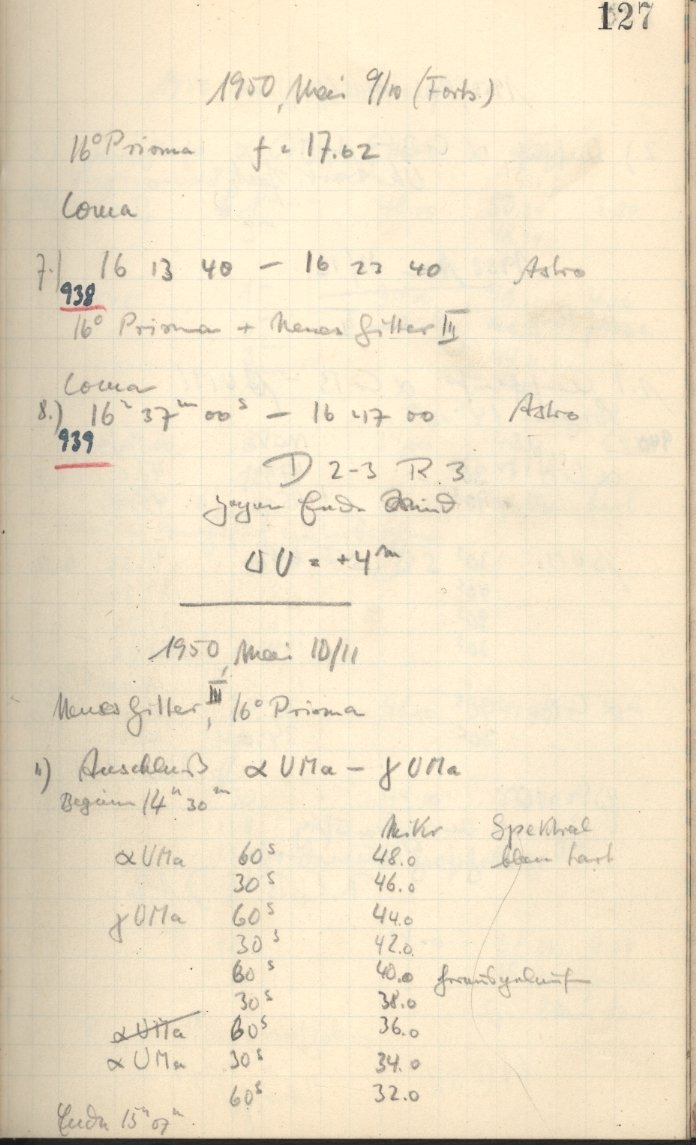 127
1950, Mai 9/10 (Forts.)
16° Prisma f = 17.62
Coma
7.) 16 13 40 – 16 23 40 Astro
938
16° Prisma + Neues Gitter III
Coma
8.) 16ʰ 37ᵐ 00ˢ – 16 47 00 Astro
939
D 2-3 R 3
gegen Ende Wind
ΔU = +4ᵐ
1950, Mai 10/11
Neues Gitter III, 16° Prisma
1) Anschluß α UMa – γ UMa
Beginn 14ʰ 30ᵐ
Mikr Spektral
α UMa 60ˢ 48.0 blau hart
30ˢ 46.0
γ UMa 60ˢ 44.0
30ˢ 42.0
60ˢ 40.0
30ˢ 38.0
α UMa 60ˢ 36.0
α UMa 30ˢ 34.0
60ˢ 32.0
Ende 15ʰ 07ᵐ